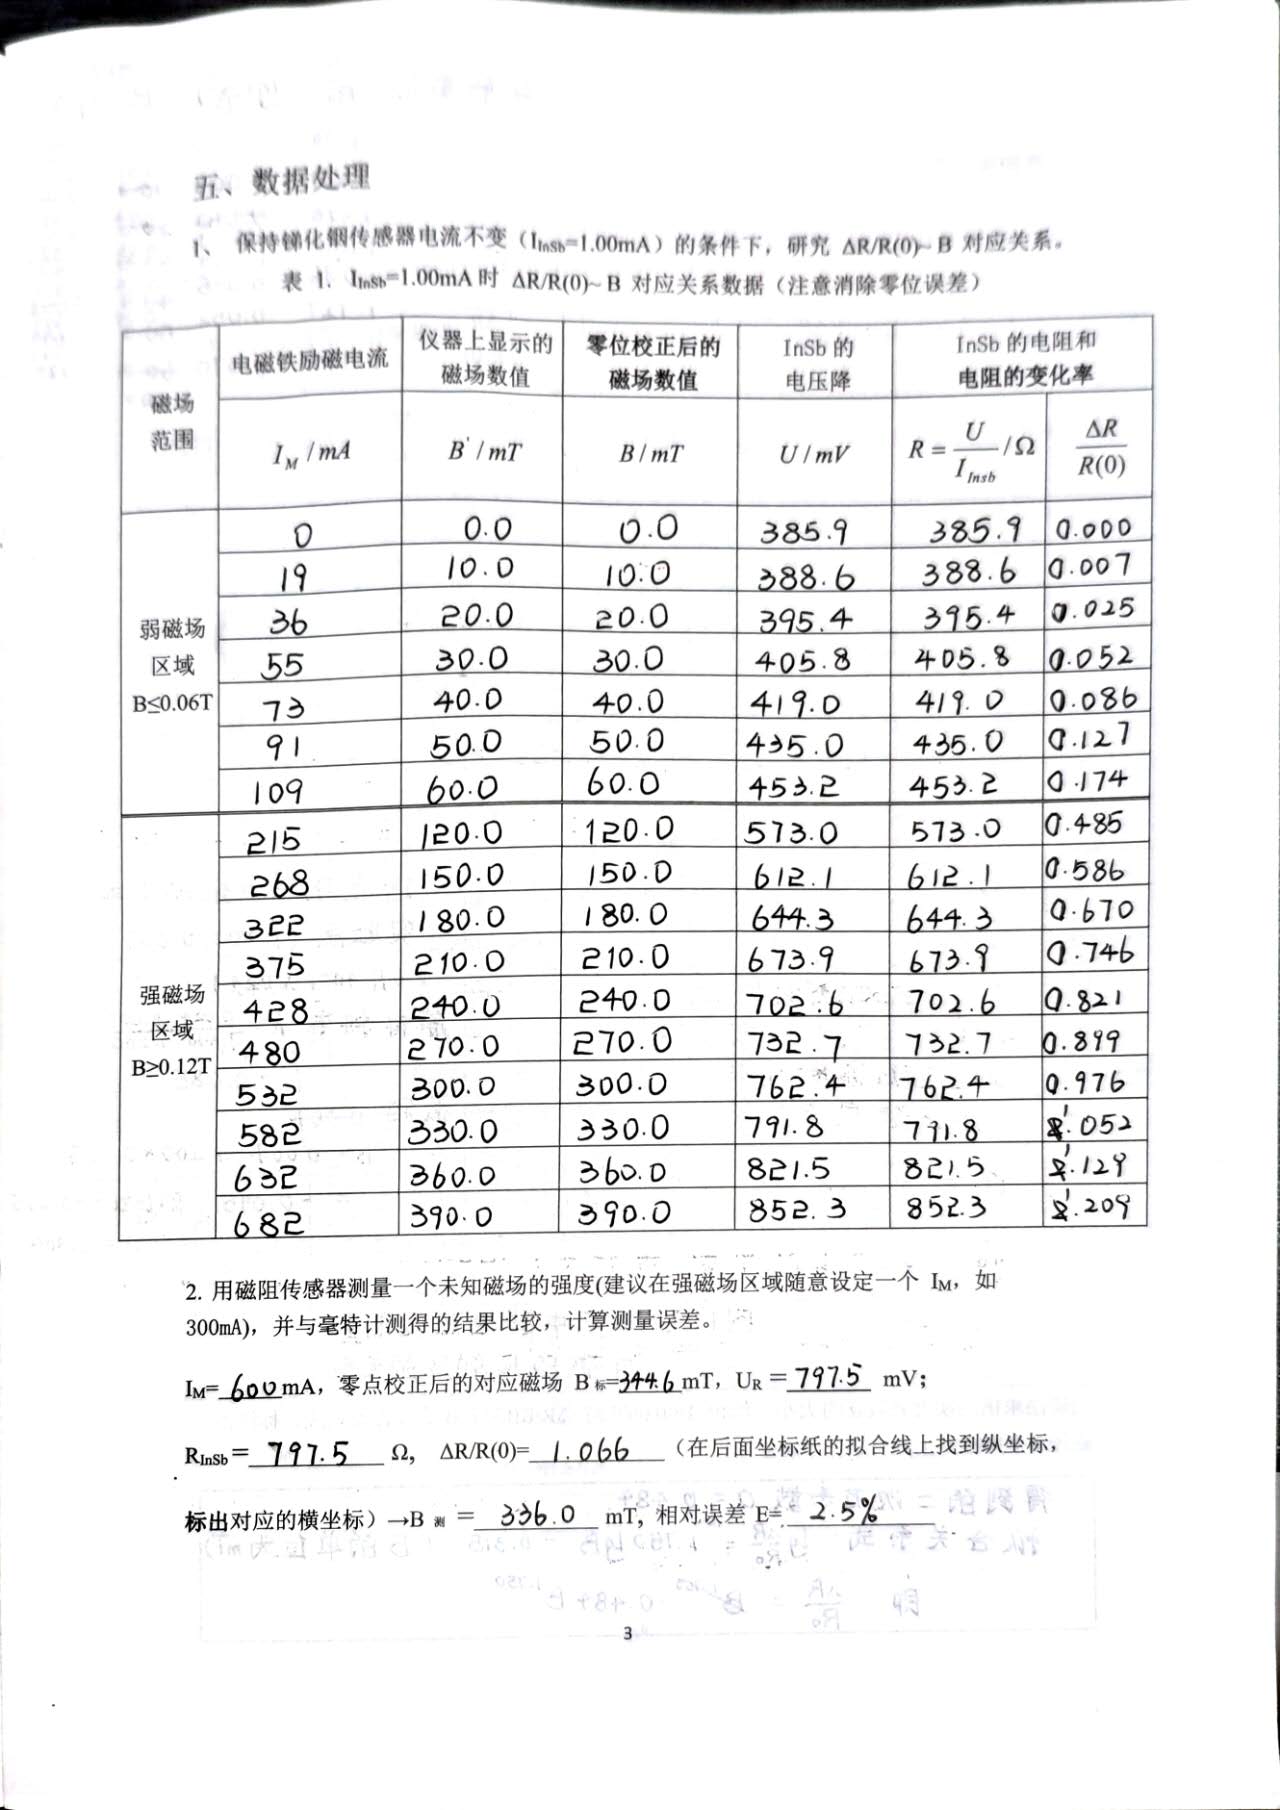 五、数据处理
1、 保持锑化铟传感器电流不变（IInSb=1.00mA）的条件下，研究 ΔR/R(0)~ B 对应关系。
表 1. IInSb=1.00mA 时 ΔR/R(0)~ B 对应关系数据（注意消除零位误差）
磁场范围 电磁铁励磁电流 仪器上显示的磁场数值 零位校正后的磁场数值 InSb 的电压降 InSb 的电阻和电阻的变化率
I_M / mA B' / mT B / mT U / mV R = U / I_Insb / Ω ΔR / R(0)
弱磁场区域 B≤0.06T
0 0.0 0.0 385.9 385.9 0.000
19 10.0 10.0 388.6 388.6 0.007
36 20.0 20.0 395.4 395.4 0.025
55 30.0 30.0 405.8 405.8 0.052
73 40.0 40.0 419.0 419.0 0.086
91 50.0 50.0 435.0 435.0 0.127
109 60.0 60.0 453.2 453.2 0.174
强磁场区域 B≥0.12T
215 120.0 120.0 573.0 573.0 0.485
268 150.0 150.0 612.1 612.1 0.586
322 180.0 180.0 644.3 644.3 0.670
375 210.0 210.0 673.9 673.9 0.746
428 240.0 240.0 702.6 702.6 0.821
480 270.0 270.0 732.7 732.7 0.899
532 300.0 300.0 762.4 762.4 0.976
582 330.0 330.0 791.8 791.8 1.052
632 360.0 360.0 821.5 821.5 1.129
682 390.0 390.0 852.3 852.3 1.209
2. 用磁阻传感器测量一个未知磁场的强度(建议在强磁场区域随意设定一个 IM，如
300mA)，并与毫特计测得的结果比较，计算测量误差。
IM= 600 mA，零点校正后的对应磁场 B标=344.6 mT，UR = 797.5 mV；
RInSb = 797.5 Ω， ΔR/R(0)= 1.066 （在后面坐标纸的拟合线上找到纵坐标，
标出对应的横坐标）→B测 = 336.0 mT, 相对误差 E= 2.5%
3